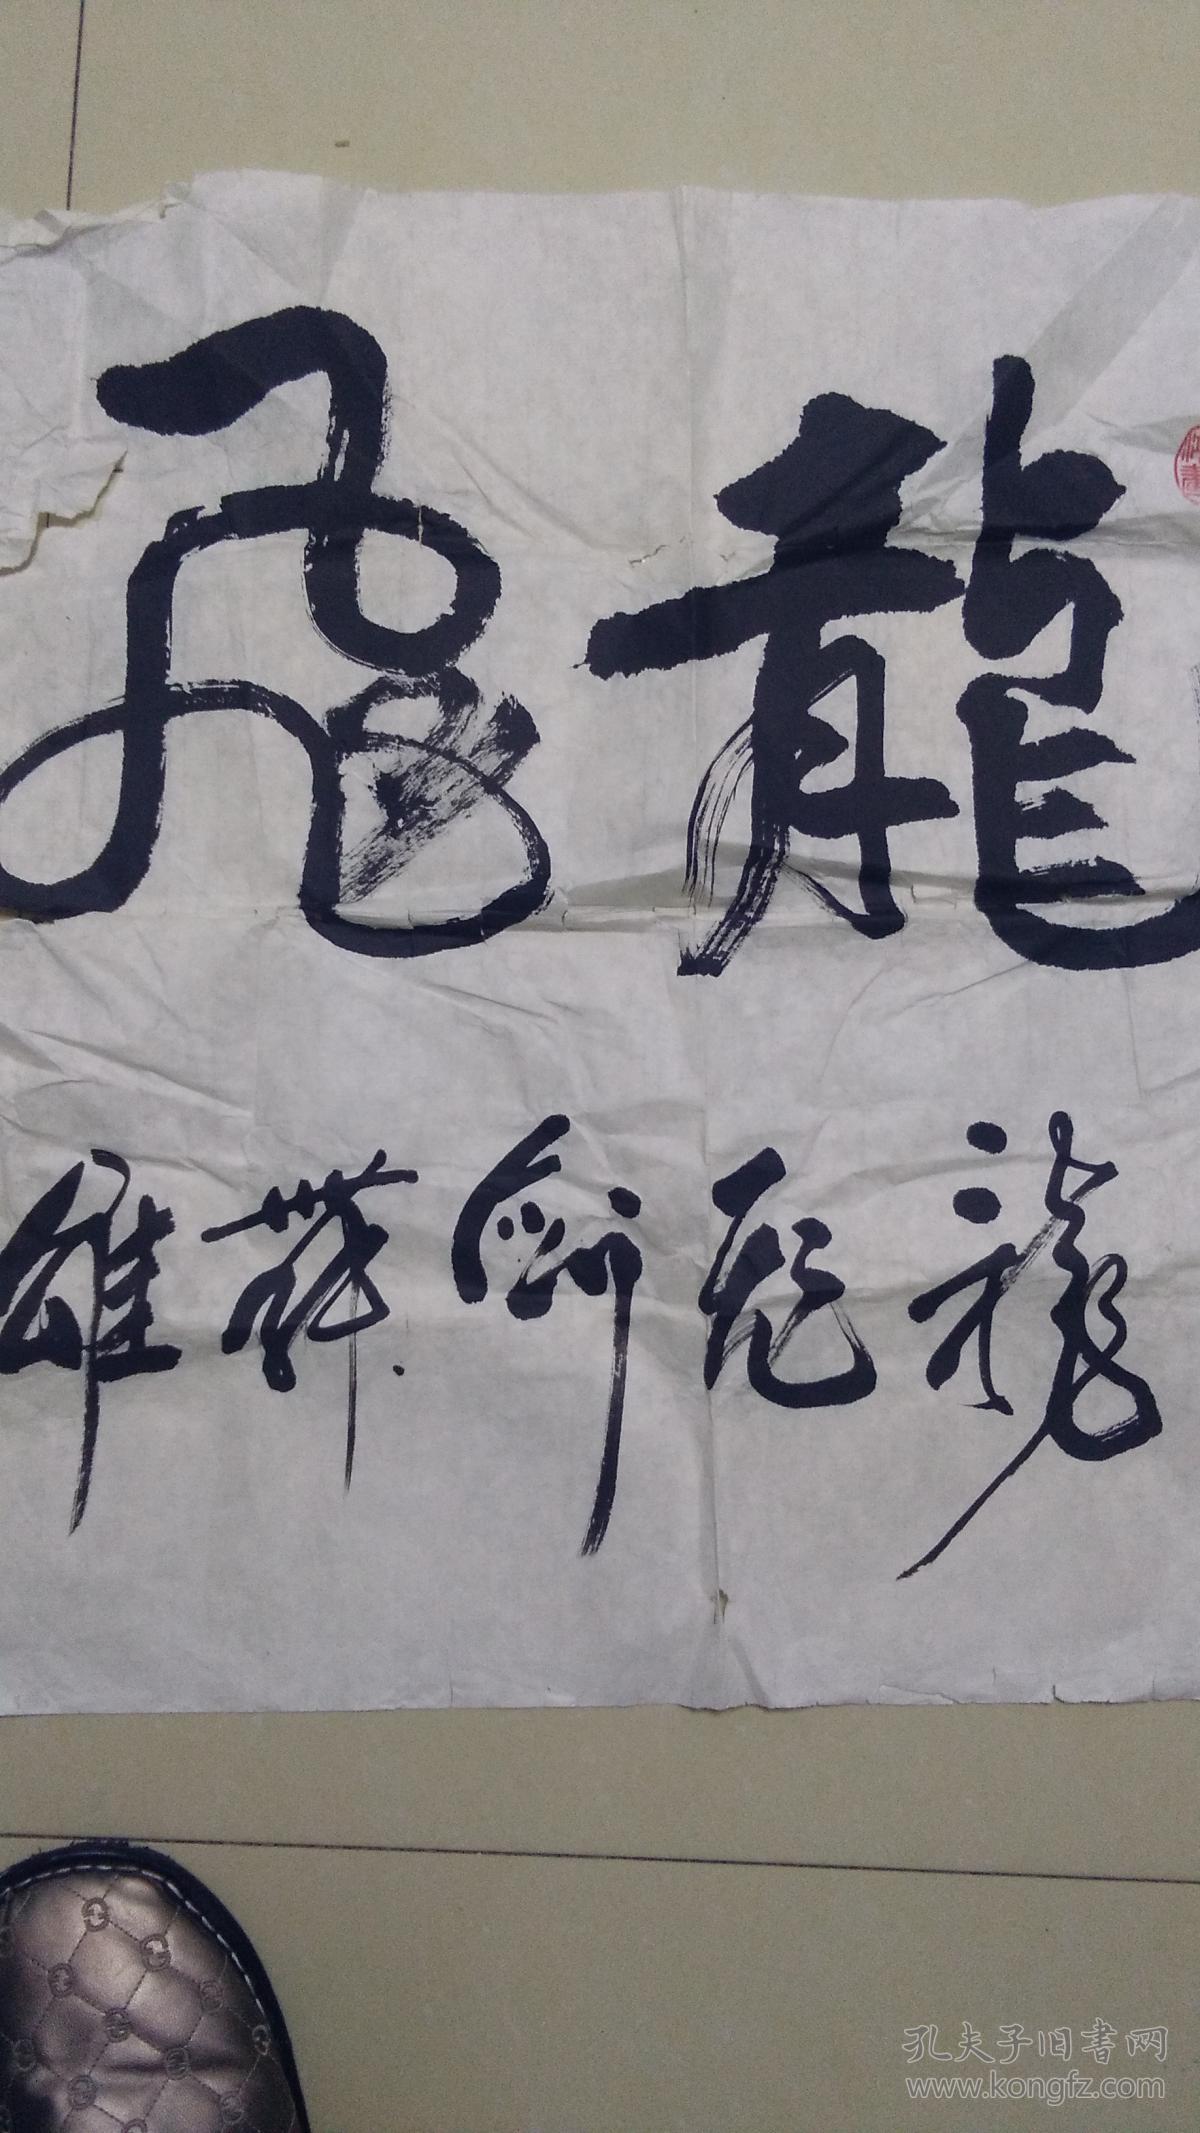 龍飛
龍飛劍舞雄
孔夫子旧书网
www.kongfz.com